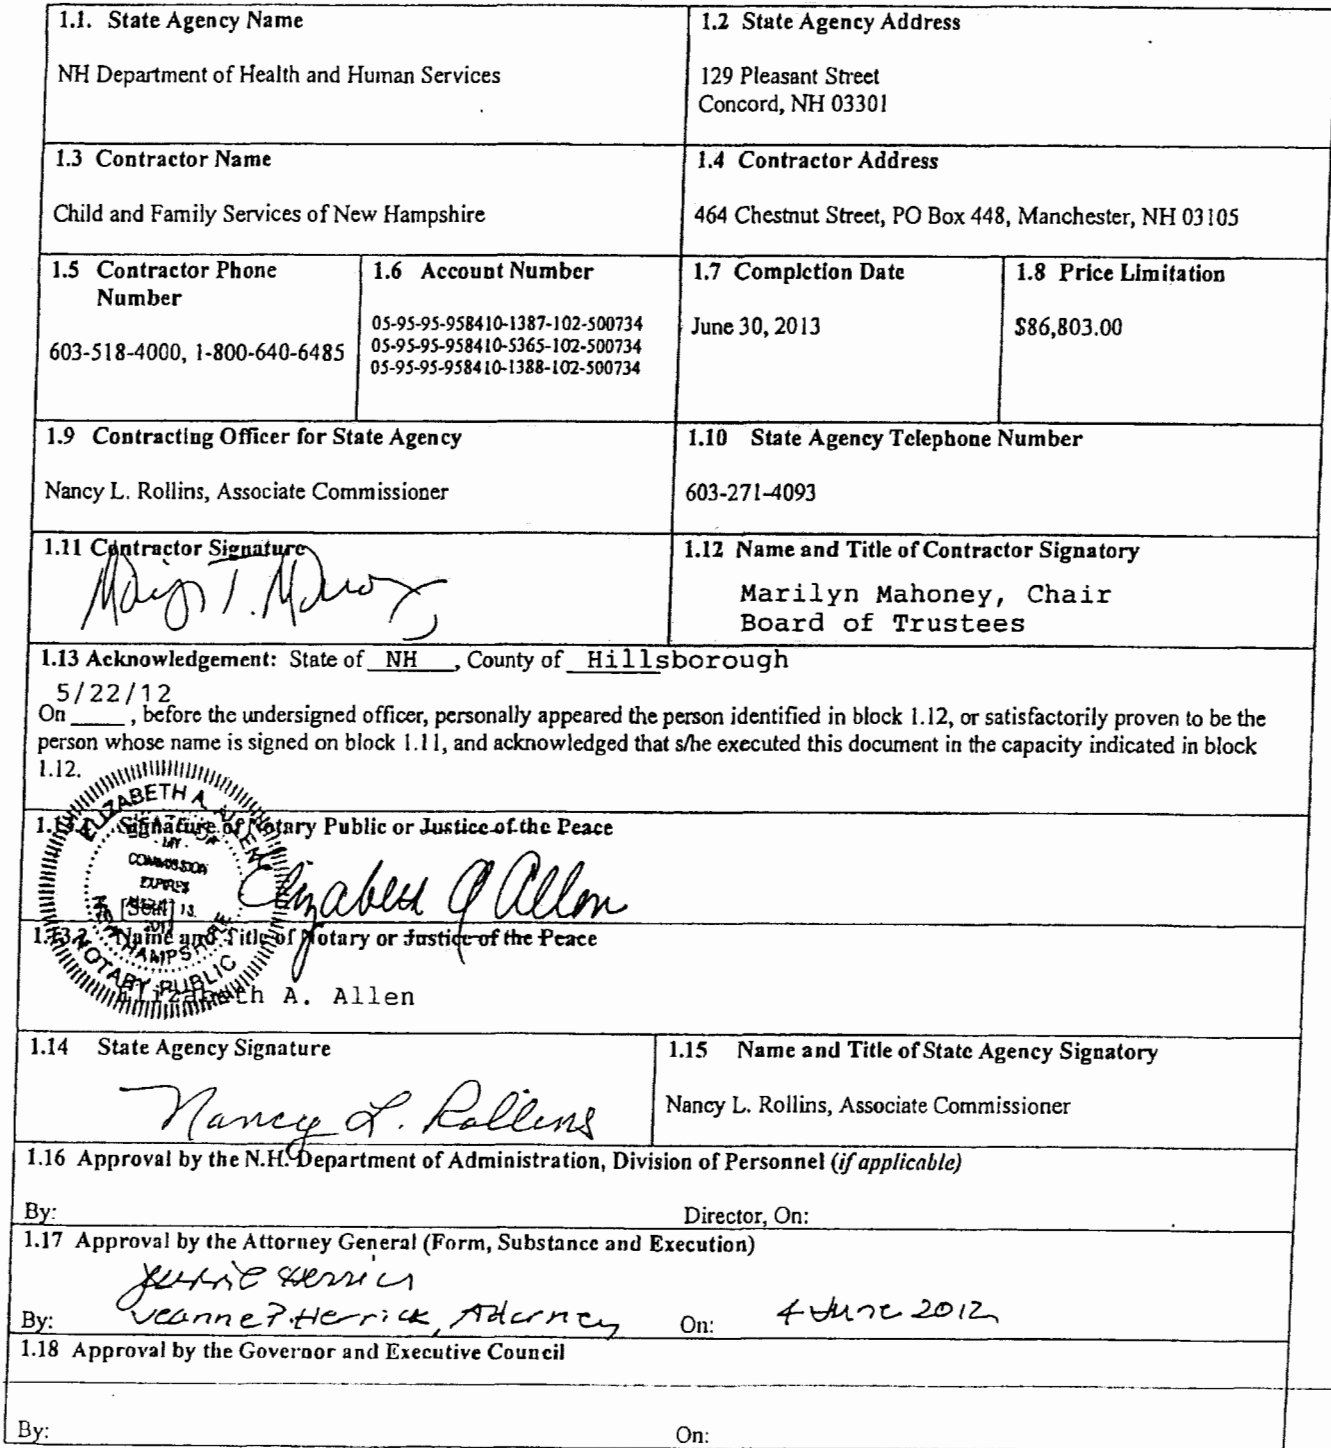 1.1. State Agency Name
NH Department of Health and Human Services
1.2 State Agency Address
129 Pleasant Street
Concord, NH 03301
1.3 Contractor Name
Child and Family Services of New Hampshire
1.4 Contractor Address
464 Chestnut Street, PO Box 448, Manchester, NH 03105
1.5 Contractor Phone
Number
603-518-4000, 1-800-640-6485
1.6 Account Number
05-95-95-958410-1387-102-500734
05-95-95-958410-5365-102-500734
05-95-95-958410-1388-102-500734
1.7 Completion Date
June 30, 2013
1.8 Price Limitation
$86,803.00
1.9 Contracting Officer for State Agency
Nancy L. Rollins, Associate Commissioner
1.10 State Agency Telephone Number
603-271-4093
1.11 Contractor Signature
1.12 Name and Title of Contractor Signatory
Marilyn Mahoney, Chair
Board of Trustees
1.13 Acknowledgement: State of NH, County of Hillsborough
5/22/12
On ____, before the undersigned officer, personally appeared the person identified in block 1.12, or satisfactorily proven to be the
person whose name is signed on block 1.11, and acknowledged that s/he executed this document in the capacity indicated in block
1.12.
Signature of Notary Public or Justice of the Peace
ELIZABETH A. ALLEN
MY
COMMISSION
EXPIRES
[Seal]
NEW HAMPSHIRE
NOTARY PUBLIC
Elizabeth A Allen
1.13.2 Name and Title of Notary or Justice of the Peace
Elizabeth A. Allen
1.14 State Agency Signature
Nancy L. Rollins
1.15 Name and Title of State Agency Signatory
Nancy L. Rollins, Associate Commissioner
1.16 Approval by the N.H. Department of Administration, Division of Personnel (if applicable)
By:
Director, On:
1.17 Approval by the Attorney General (Form, Substance and Execution)
By: Jeanne P. Herrick, Attorney On: 4 June 2012
1.18 Approval by the Governor and Executive Council
By:
On: